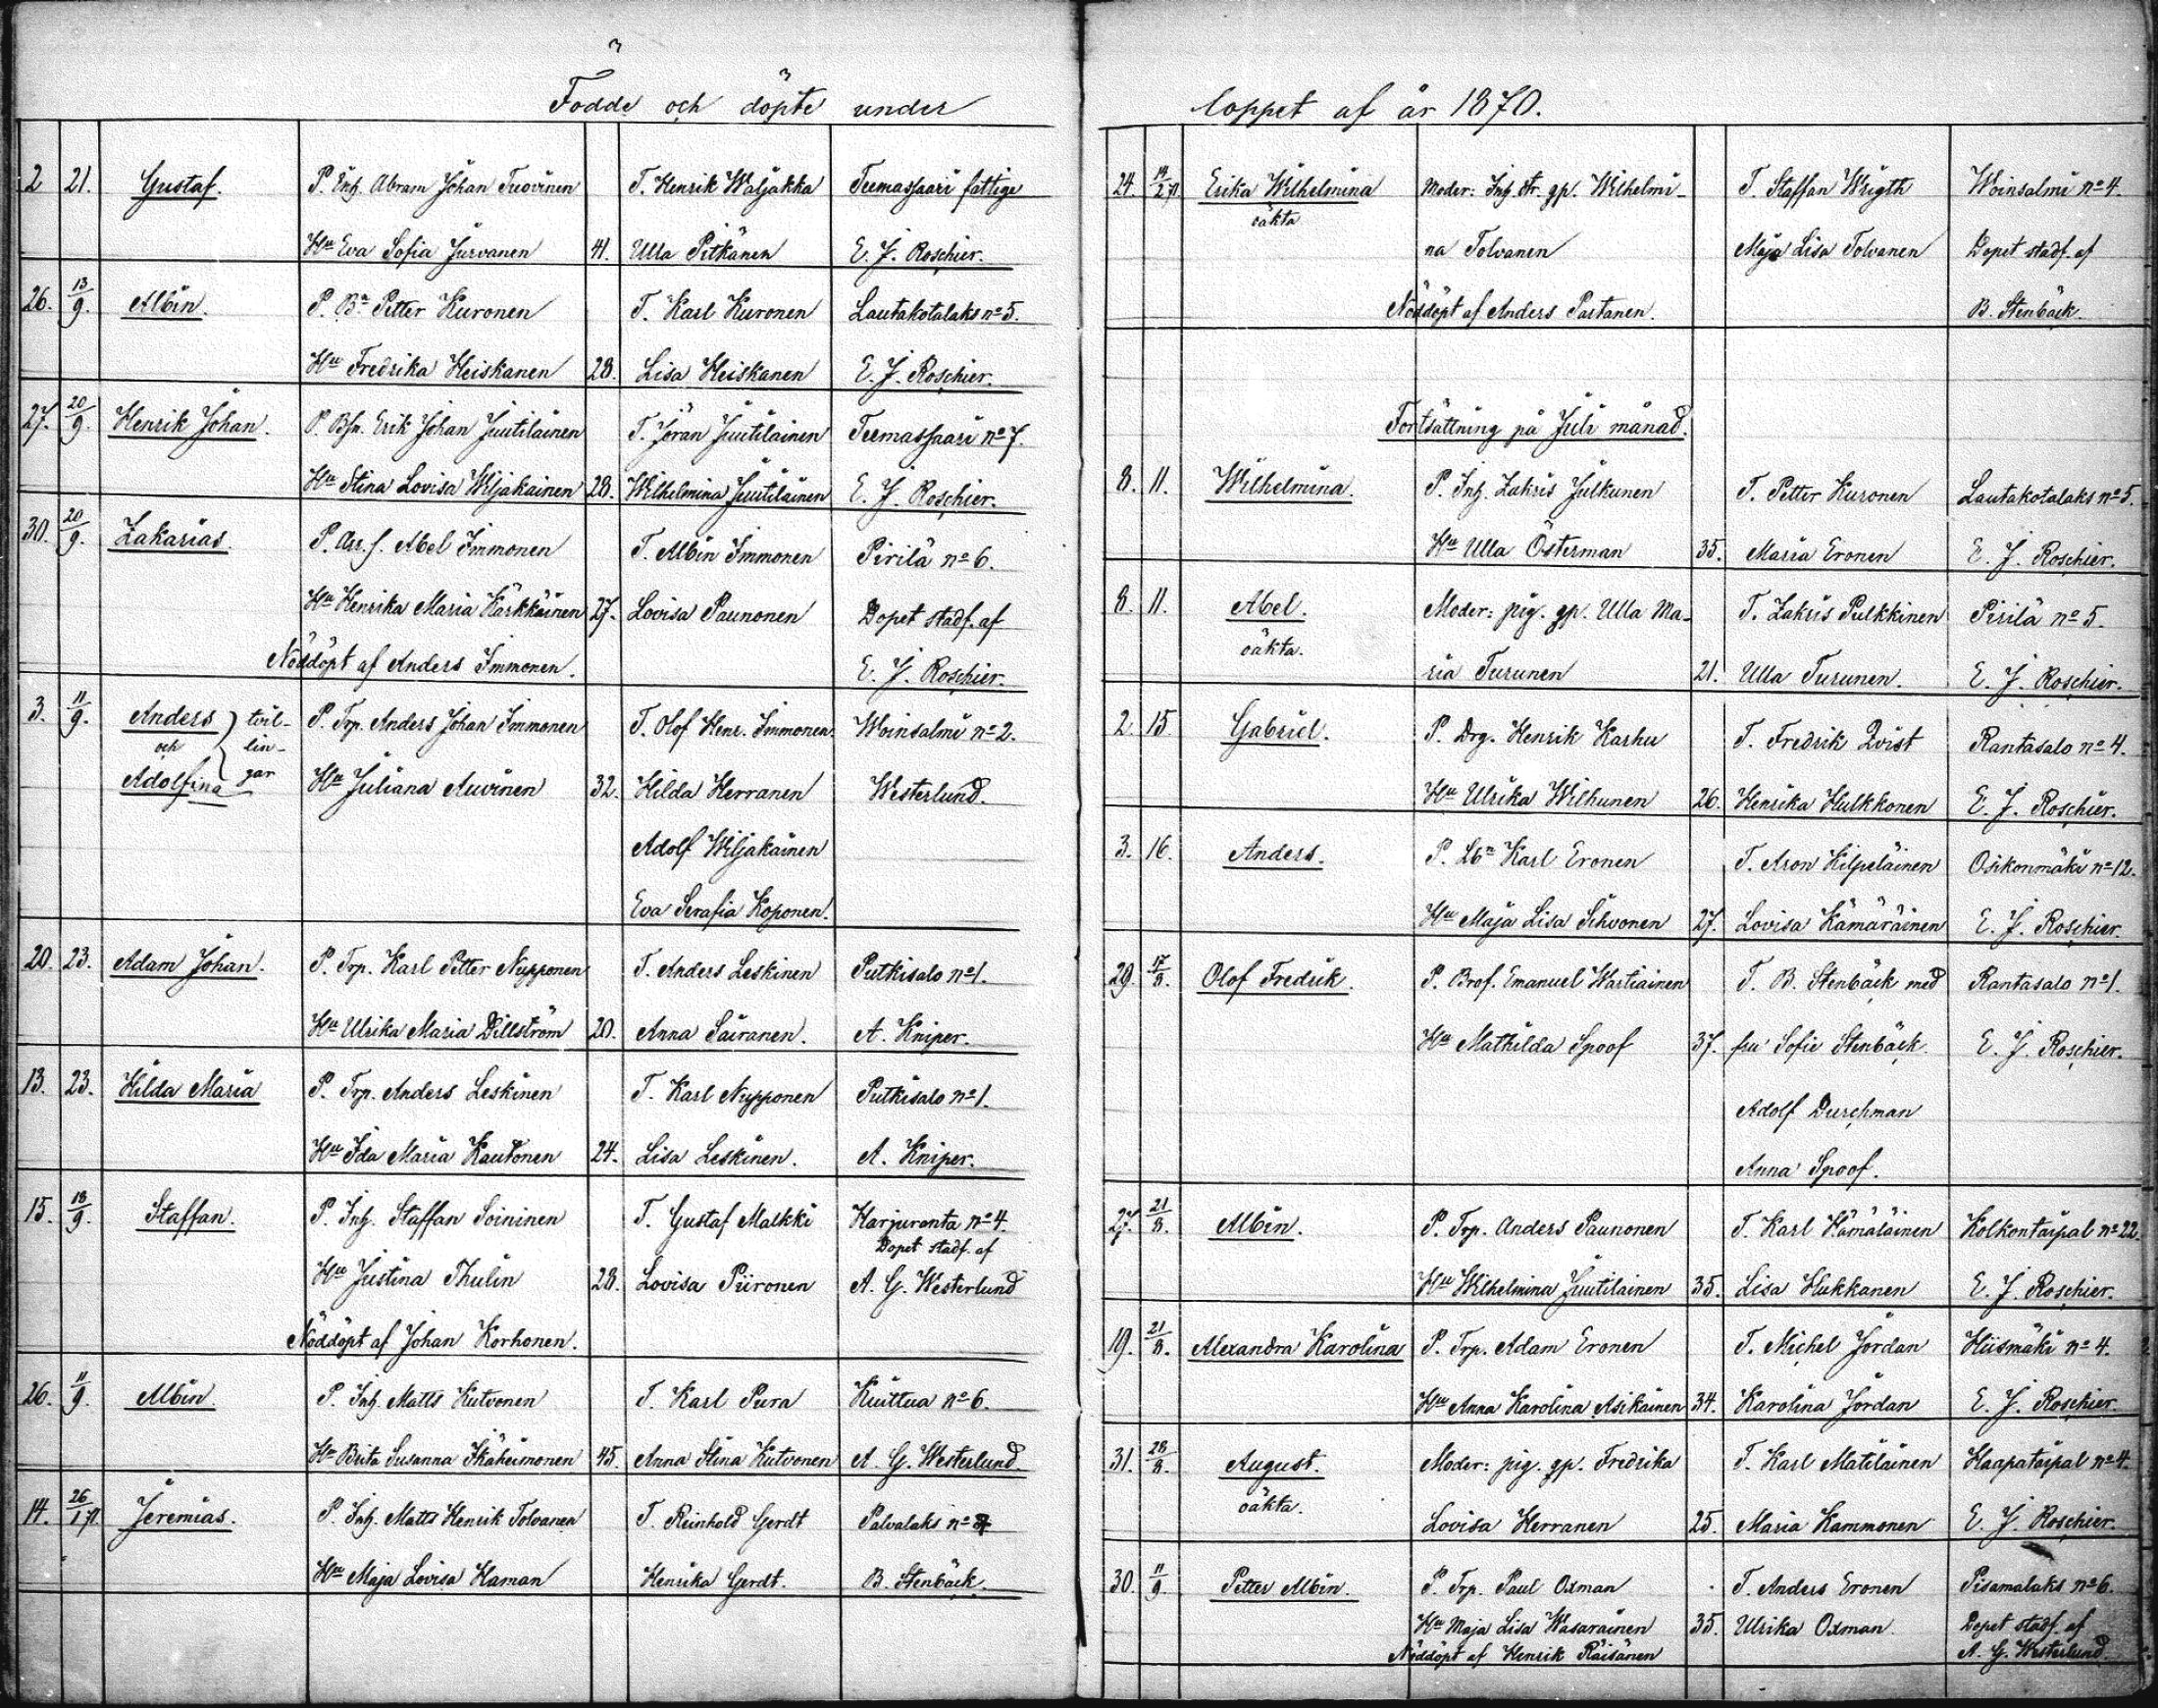 Födde och döpte under
2 21. Gustaf. P. Inh. Abram Johan Tuovinen T. Henrik Waljakka Teemassaari fattige
Hu Eva Sofia Jurvanen 41. Ulla Pitkänen E. J. Roschier.
26. 13/9. Albin. P. Bn Petter Kuronen T. Karl Kuronen Lautakotalaks no 5.
Hu Fredrika Heiskanen 28. Lisa Heiskanen E. J. Roschier.
27. 20/9. Henrik Johan. P. Bsn. Erik Johan Juutilainen T. Jöran Juutilainen Teemassaari no 7.
Hu Stina Lovisa Wiljakainen 28. Wilhelmina Juutilainen E. J. Roschier.
30. 20/9. Zakarias. P. Arr. f. Abel Immonen T. Albin Immonen Pirilä no 6.
Hu Henrika Maria Karkkäinen 27. Lovisa Paunonen Dopet stadf. af
Nöddöpt af Anders Immonen. E. J. Roschier.
3. 11/9. Anders tvil- P. Trp. Anders Johan Immonen T. Olof Henr. Immonen. Woinsalmi no 2.
och lin-
Adolfina gar Hu Juliana Auvinen 32. Hilda Herranen Westerlund.
Adolf Wiljakainen
Eva Serafia Koponen.
20. 23. Adam Johan. P. Trp. Karl Petter Nupponen T. Anders Leskinen Putkisalo no 1.
Hu Ulrika Maria Dillström 20. Anna Sairanen. A. Kniper.
13. 23. Hilda Maria P. Trp. Anders Leskinen T. Karl Nupponen Putkisalo no 1.
Hu Ida Maria Kautonen 24. Lisa Leskinen. A. Kniper.
15. 18/9. Staffan. P. Inh. Staffan Soininen T. Gustaf Malkki Harjuranta no 4.
Dopet stadf. af
Hu Justina Thulin 28. Lovisa Piironen A. G. Westerlund
Nöddöpt af Johan Korhonen.
26. 11/9. Albin. P. Inh. Matts Kutvonen T. Karl Pura Kiuttua no 6.
Hu Brita Susanna Ikäheimonen 45. Anna Stina Kutvonen A. G. Westerlund.
14. 26/1 71. Jeremias. P. Inh. Matts Henrik Tolvanen T. Reinhold Gerdt Palvalaks no
Hu Maja Lovisa Haman Henrika Gerdt. B. Stenbäck.
loppet af år 1870.
24. 19/2 71 Erika Wilhelmina Moder: Inh. dr. gp. Wilhelmi- T. Staffan Wrigth Woinsalmi no 4.
oäkta
na Tolvanen Maja Lisa Tolvanen Dopet stadf. af
Nöddöpt af Anders Partanen. B. Stenbäck.
Fortsättning på Juli månad.
8. 11. Wilhelmina. P. Inh. Zakris Julkunen T. Petter Kuronen Lautakotalaks no 5.
Hu Ulla Österman 35. Maria Eronen E. J. Roschier.
8. 11. Abel. Moder: pig. gp. Ulla Ma- T. Zakris Pulkkinen Pirilä no 5.
oäkta.
ria Turunen 21. Ulla Turunen. E. J. Roschier.
2. 15 Gabriel. P. Drg. Henrik Karhu T. Fredrik Qvist Rantasalo no 4.
Hu Ulrika Wilhunen 26. Henrika Hulkkonen E. J. Roschier.
3. 16. Anders. P. Lbn Karl Eronen T. Aron Kilpeläinen Osikonmäki no 12.
Hu Maja Lisa Sihvonen 27. Lovisa Kämäräinen E. J. Roschier.
29. 17/8. Olof Fredrik. P. Brof. Emanuel Wartiainen T. B. Stenbäck med Rantasalo no 1.
Hu Mathilda Spoof 37. fru Sofie Stenbäck. E. J. Roschier.
Adolf Durchman
Anna Spoof.
27. 21/8. Albin. P. Trp. Anders Paunonen T. Karl Hämäläinen Kolkontaipal no 22.
Hu Wilhelmina Juutilainen 35. Lisa Hukkanen E. J. Roschier.
19. 21/8. Alexandra Karolina P. Trp. Adam Eronen T. Michel Jordan Hiismäki no 4.
Hu Anna Karolina Asikainen 34. Karolina Jordan E. J. Roschier.
31. 28/8. August. Moder: pig. gp. Fredrika T. Karl Matilainen Haapataipal no 4.
oäkta.
Lovisa Herranen 25. Maria Kammonen E. J. Roschier.
30. 11/9. Petter Albin. P. Trp. Paul Oxman T. Anders Eronen Pisamalaks no 6.
Hu Maja Lisa Wasarainen 35. Ulrika Oxman Dopet stadf. af
Nöddöpt af Henrik Räisänen A. G. Westerlund.